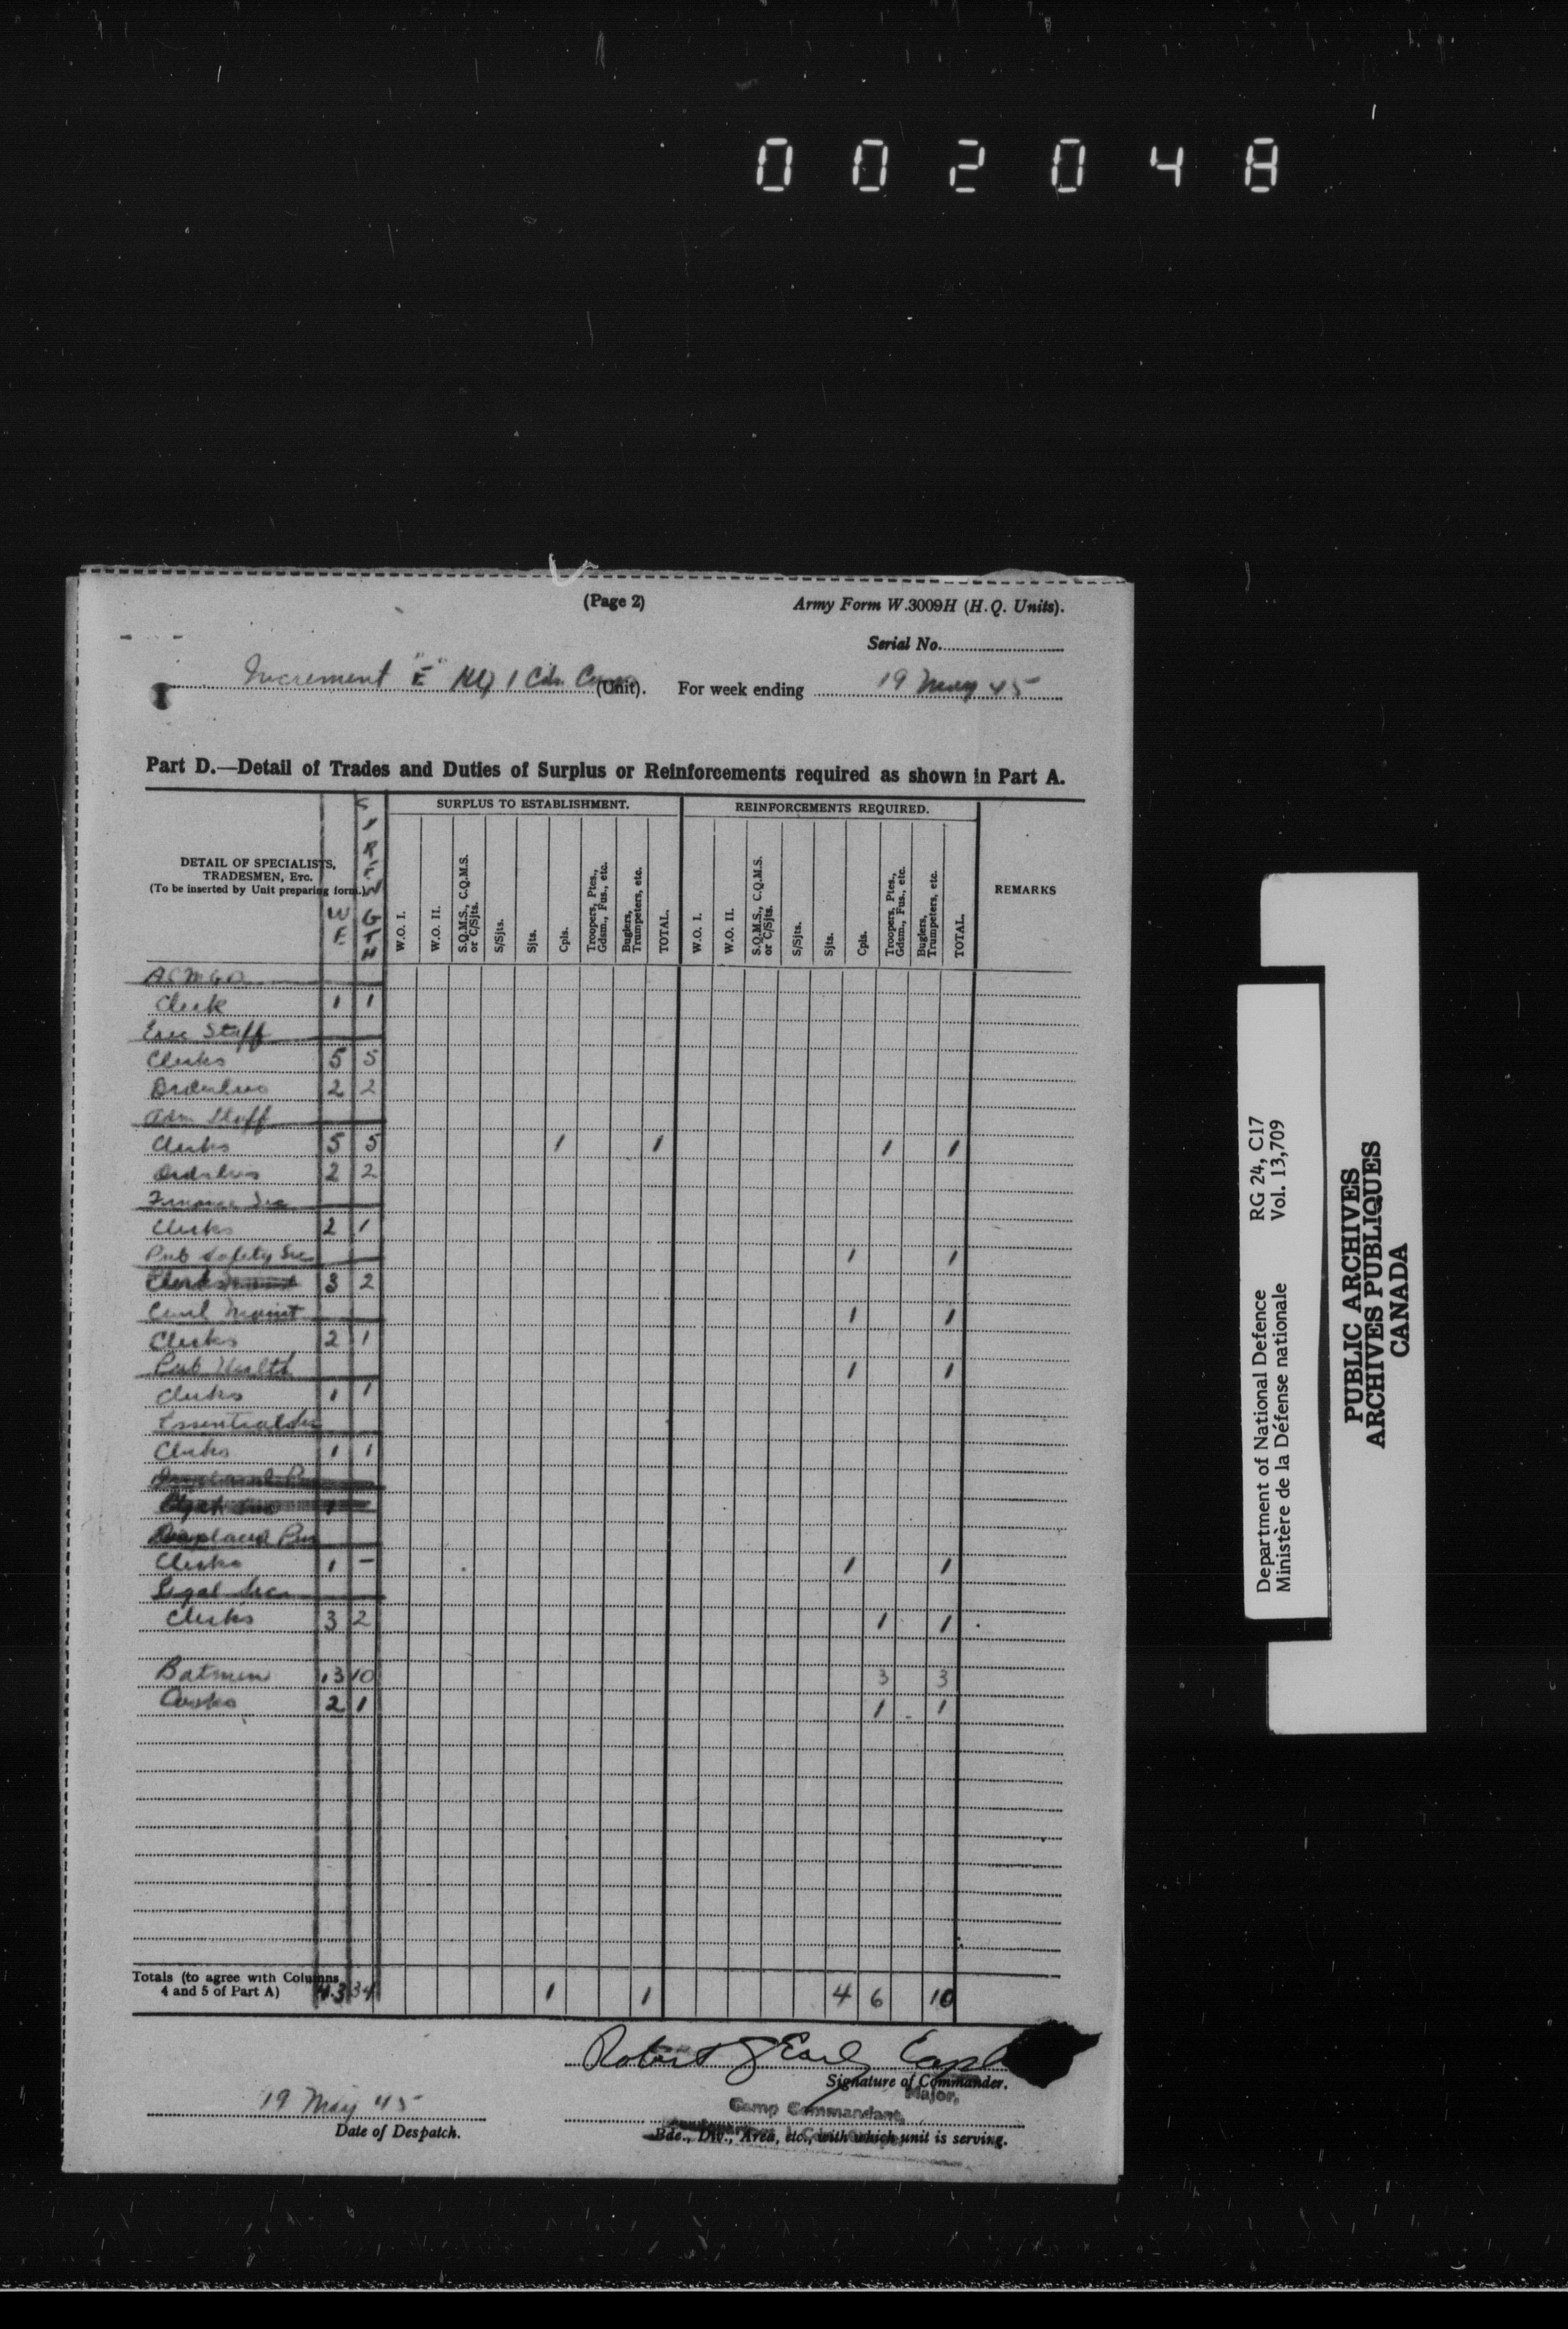 002048
(Page 2)
Army Form W.3009H (H.Q. Units).
Serial No.
Increment "E" HQ 1 Cdn Corps (Unit). For week ending 19 May 45
Part D.—Detail of Trades and Duties of Surplus or Reinforcements required as shown in Part A.
DETAIL OF SPECIALISTS, TRADESMEN, Etc.
(To be inserted by Unit preparing form.)
WE
STRENGTH
SURPLUS TO ESTABLISHMENT.
W.O. I.
W.O. II.
S.Q.M.S., C.Q.M.S. or C/Sjts.
S/Sjts.
Sjts.
Cpls.
Troopers, Ptes., Gdsm., Fus., etc.
Buglers, Trumpeters, etc.
TOTAL.
REINFORCEMENTS REQUIRED.
W.O. I.
W.O. II.
S.Q.M.S., C.Q.M.S. or C/Sjts.
S/Sjts.
Sjts.
Cpls.
Troopers, Ptes., Gdsm., Fus., etc.
Buglers, Trumpeters, etc.
TOTAL.
REMARKS
Clerk 1 1
Exec Staff
Clerks 5 5
Orderlies 2 2
Adm Staff
Clerks 5 5 1 1 1 1
Orderlies 2 2
Finance Sec
Clerks 2 1
Pub Safety Sec 1 1
Clerks 3 2
Civil Maint 1 1
Clerks 2 1
Pub Health 1 1
Clerks 1 1
Essential
Clerks 1 1
Displaced Pers
Clerks 1 – 1 1
Legal Sec
Clerks 3 2 1 1
Batmen 13 10 3 3
Cooks 2 1 1 1
Totals (to agree with Columns 4 and 5 of Part A) 43 34 1 1 4 6 10
Robert Early Capt
Signature of Commander.
Major,
Camp Commandant,
19 May 45
Date of Despatch.
Bde., Div., Area, etc., with which unit is serving.
Department of National Defence RG 24, C17
Ministère de la Défense nationale Vol. 13,709
PUBLIC ARCHIVES
ARCHIVES PUBLIQUES
CANADA